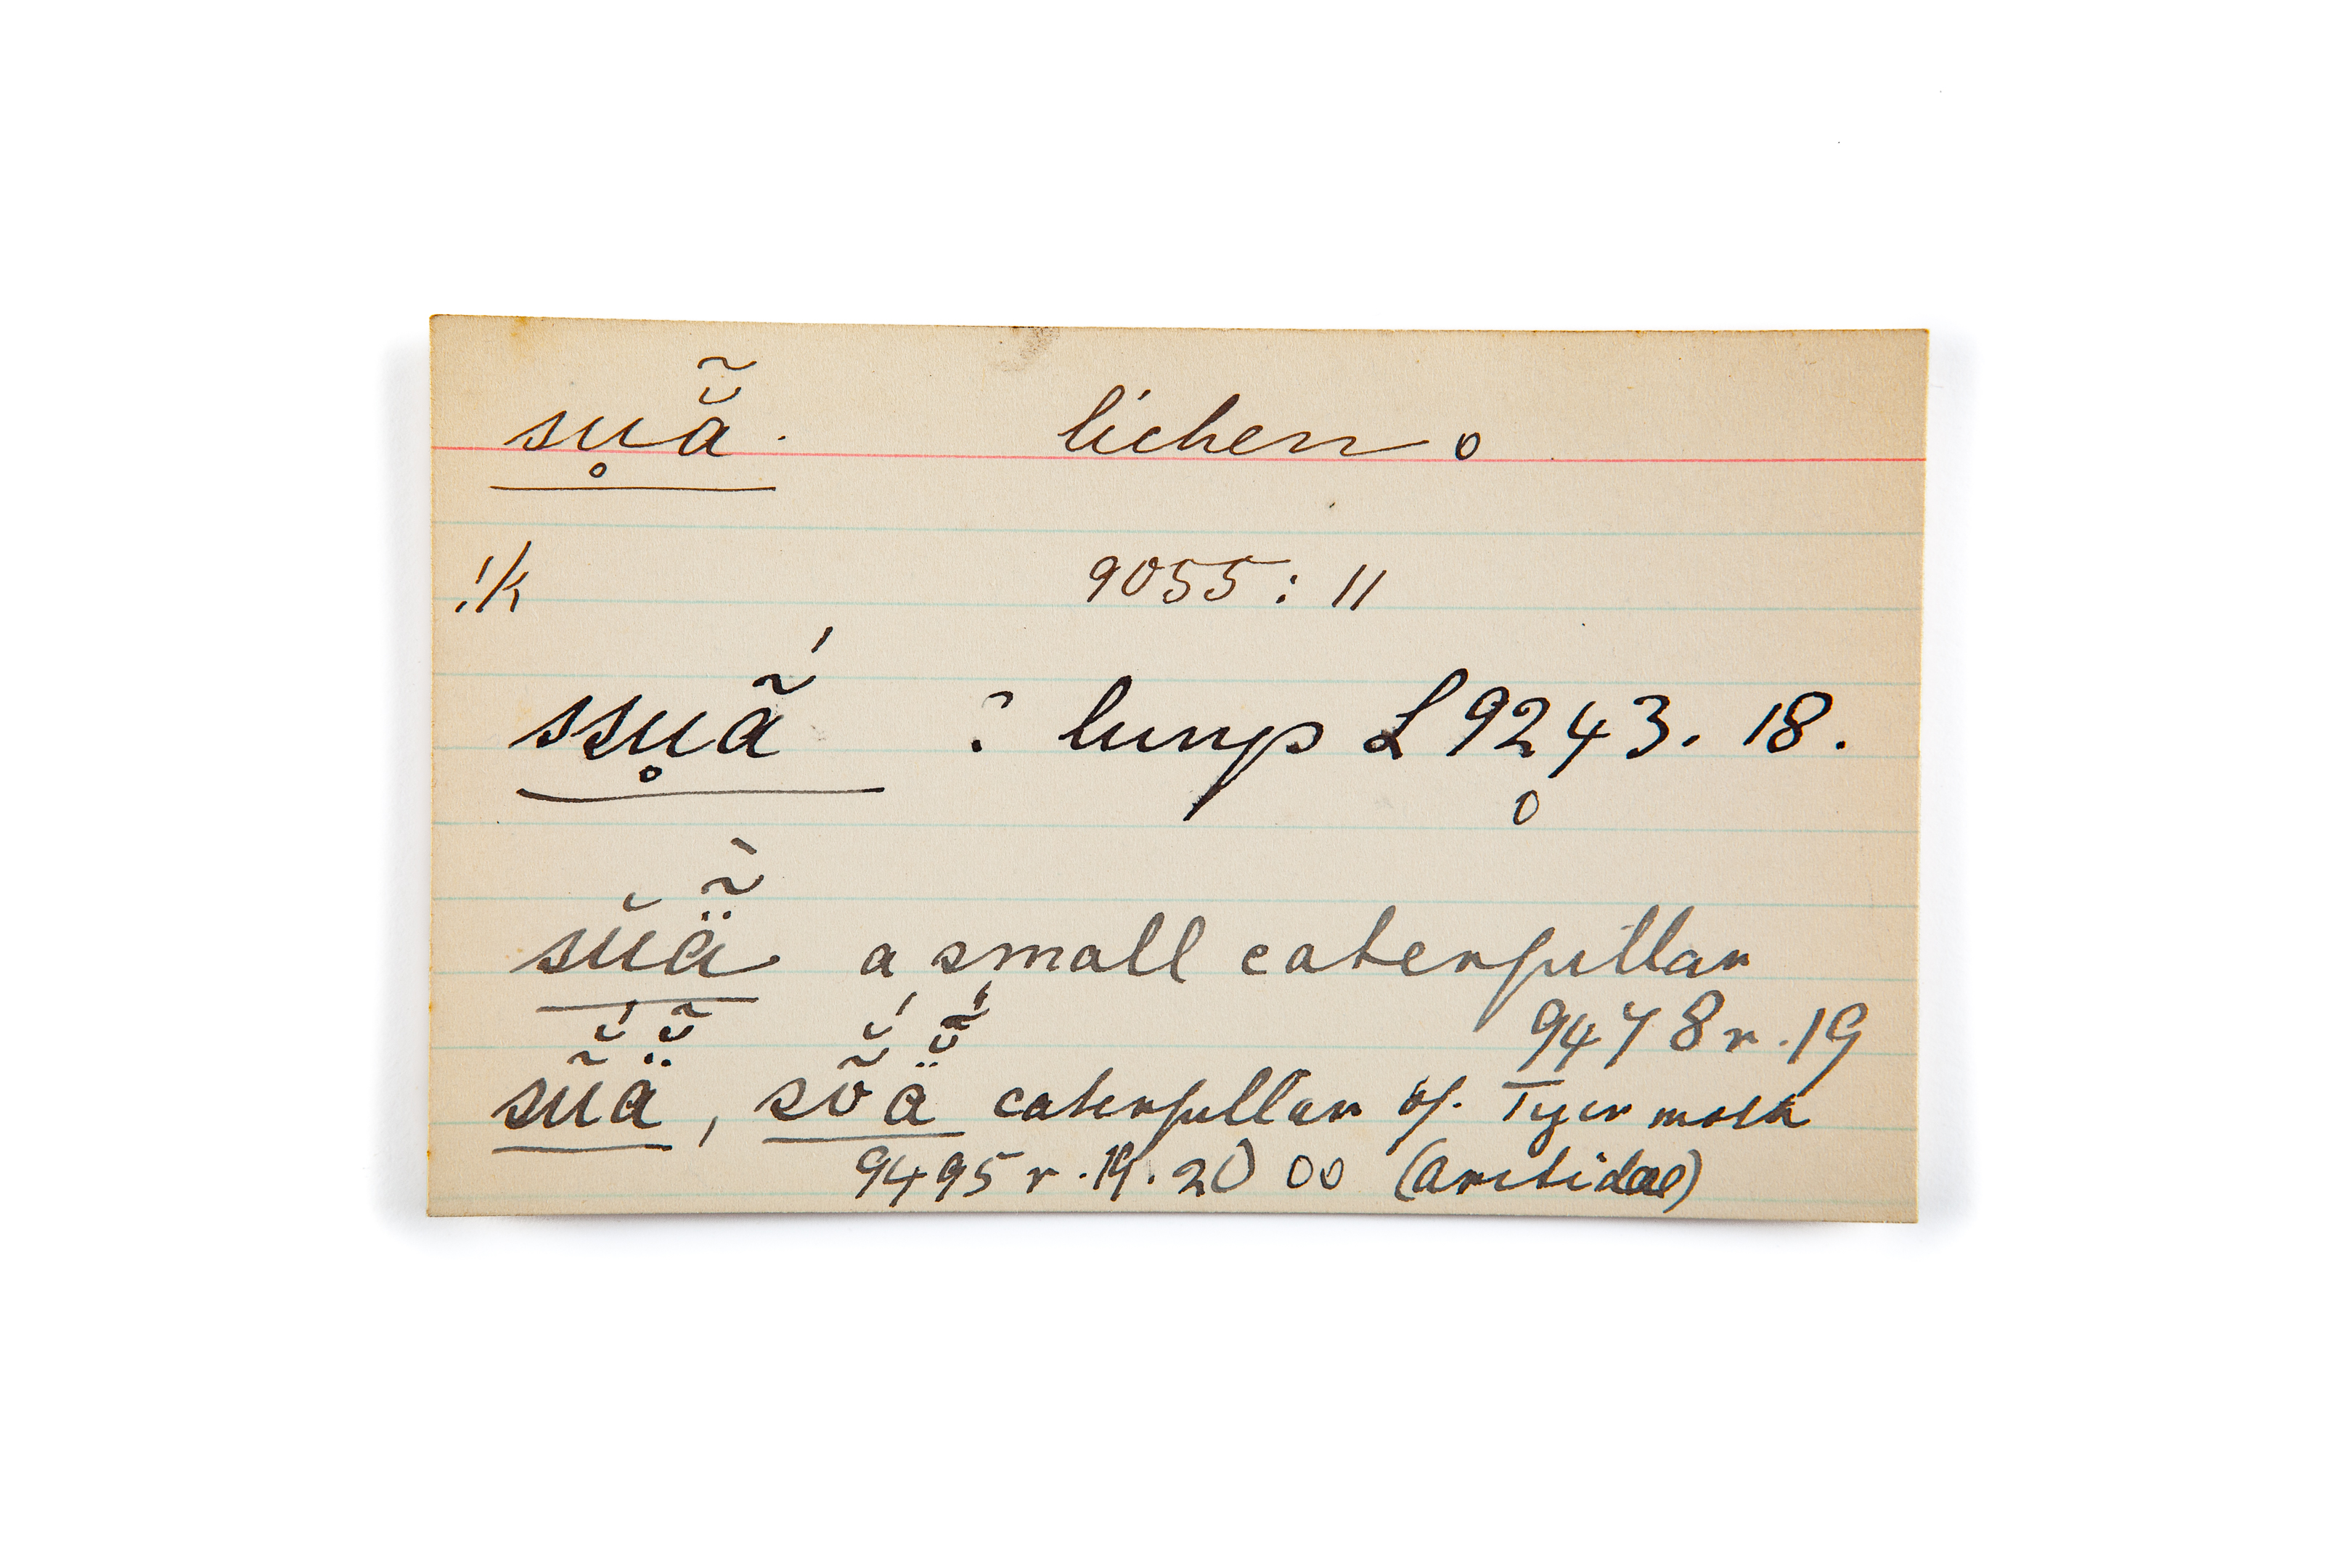 sṳ̥ã̆. lichen o
!k 9055 : 11
ssu̥ã́ ? lungs L 9243. 18.
o
sŭä̃̀ a small caterpillar
9478 r. 19
sũ̆́ä̤̆̃, sõ̆́ä̆̃́ caterpillar of. Tiger moth
9495 r. 19. 20 oo (arctidae)